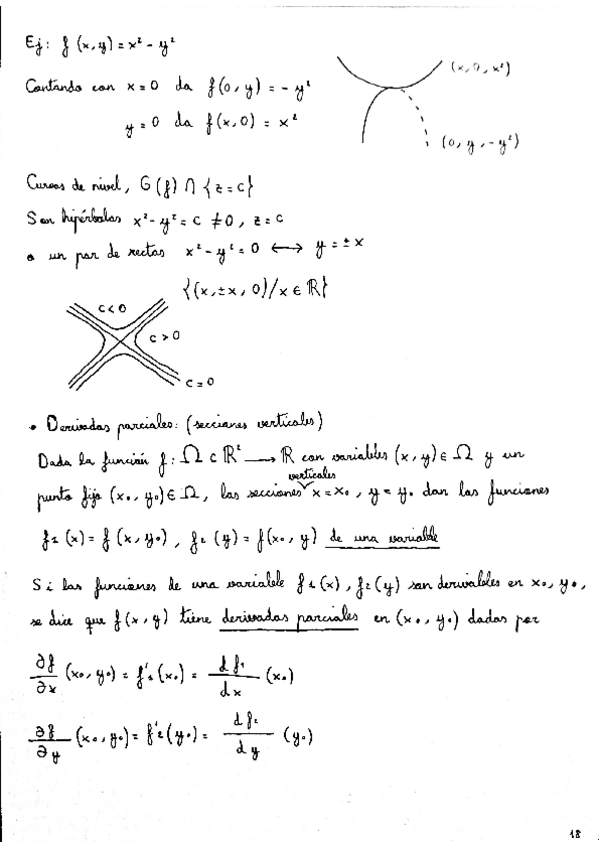 Ej: f(x,y) = x² - y²
(x, 0, x²)
Cortando con x=0 da f(0,y) = -y²
y=0 da f(x,0) = x²
(0, y, -y²)
Curvas de nivel, G(f) ∩ {z=c}
Son hipérbolas x² - y² = c ≠ 0, z=c
o un par de rectas x² - y² = 0 ⟷ y = ±x
{(x, ±x, 0)/x ∈ ℝ}
c<0
c>0
c=0
• Derivadas parciales: (secciones verticales)
Dada la función f: Ω ⊂ ℝ² ⟶ ℝ con variables (x,y) ∈ Ω y un
punto fijo (x₀, y₀) ∈ Ω, las secciones verticales x=x₀, y=y₀ dan las funciones
f₁(x) = f(x,y₀), f₂(y) = f(x₀,y) de una variable
Si las funciones de una variable f₁(x), f₂(y) son derivables en x₀, y₀,
se dice que f(x,y) tiene derivadas parciales en (x₀, y₀) dadas por
∂f/∂x (x₀, y₀) = f'₁(x₀) = df₁/dx (x₀)
∂f/∂y (x₀, y₀) = f'₂(y₀) = df₂/dy (y₀)
18